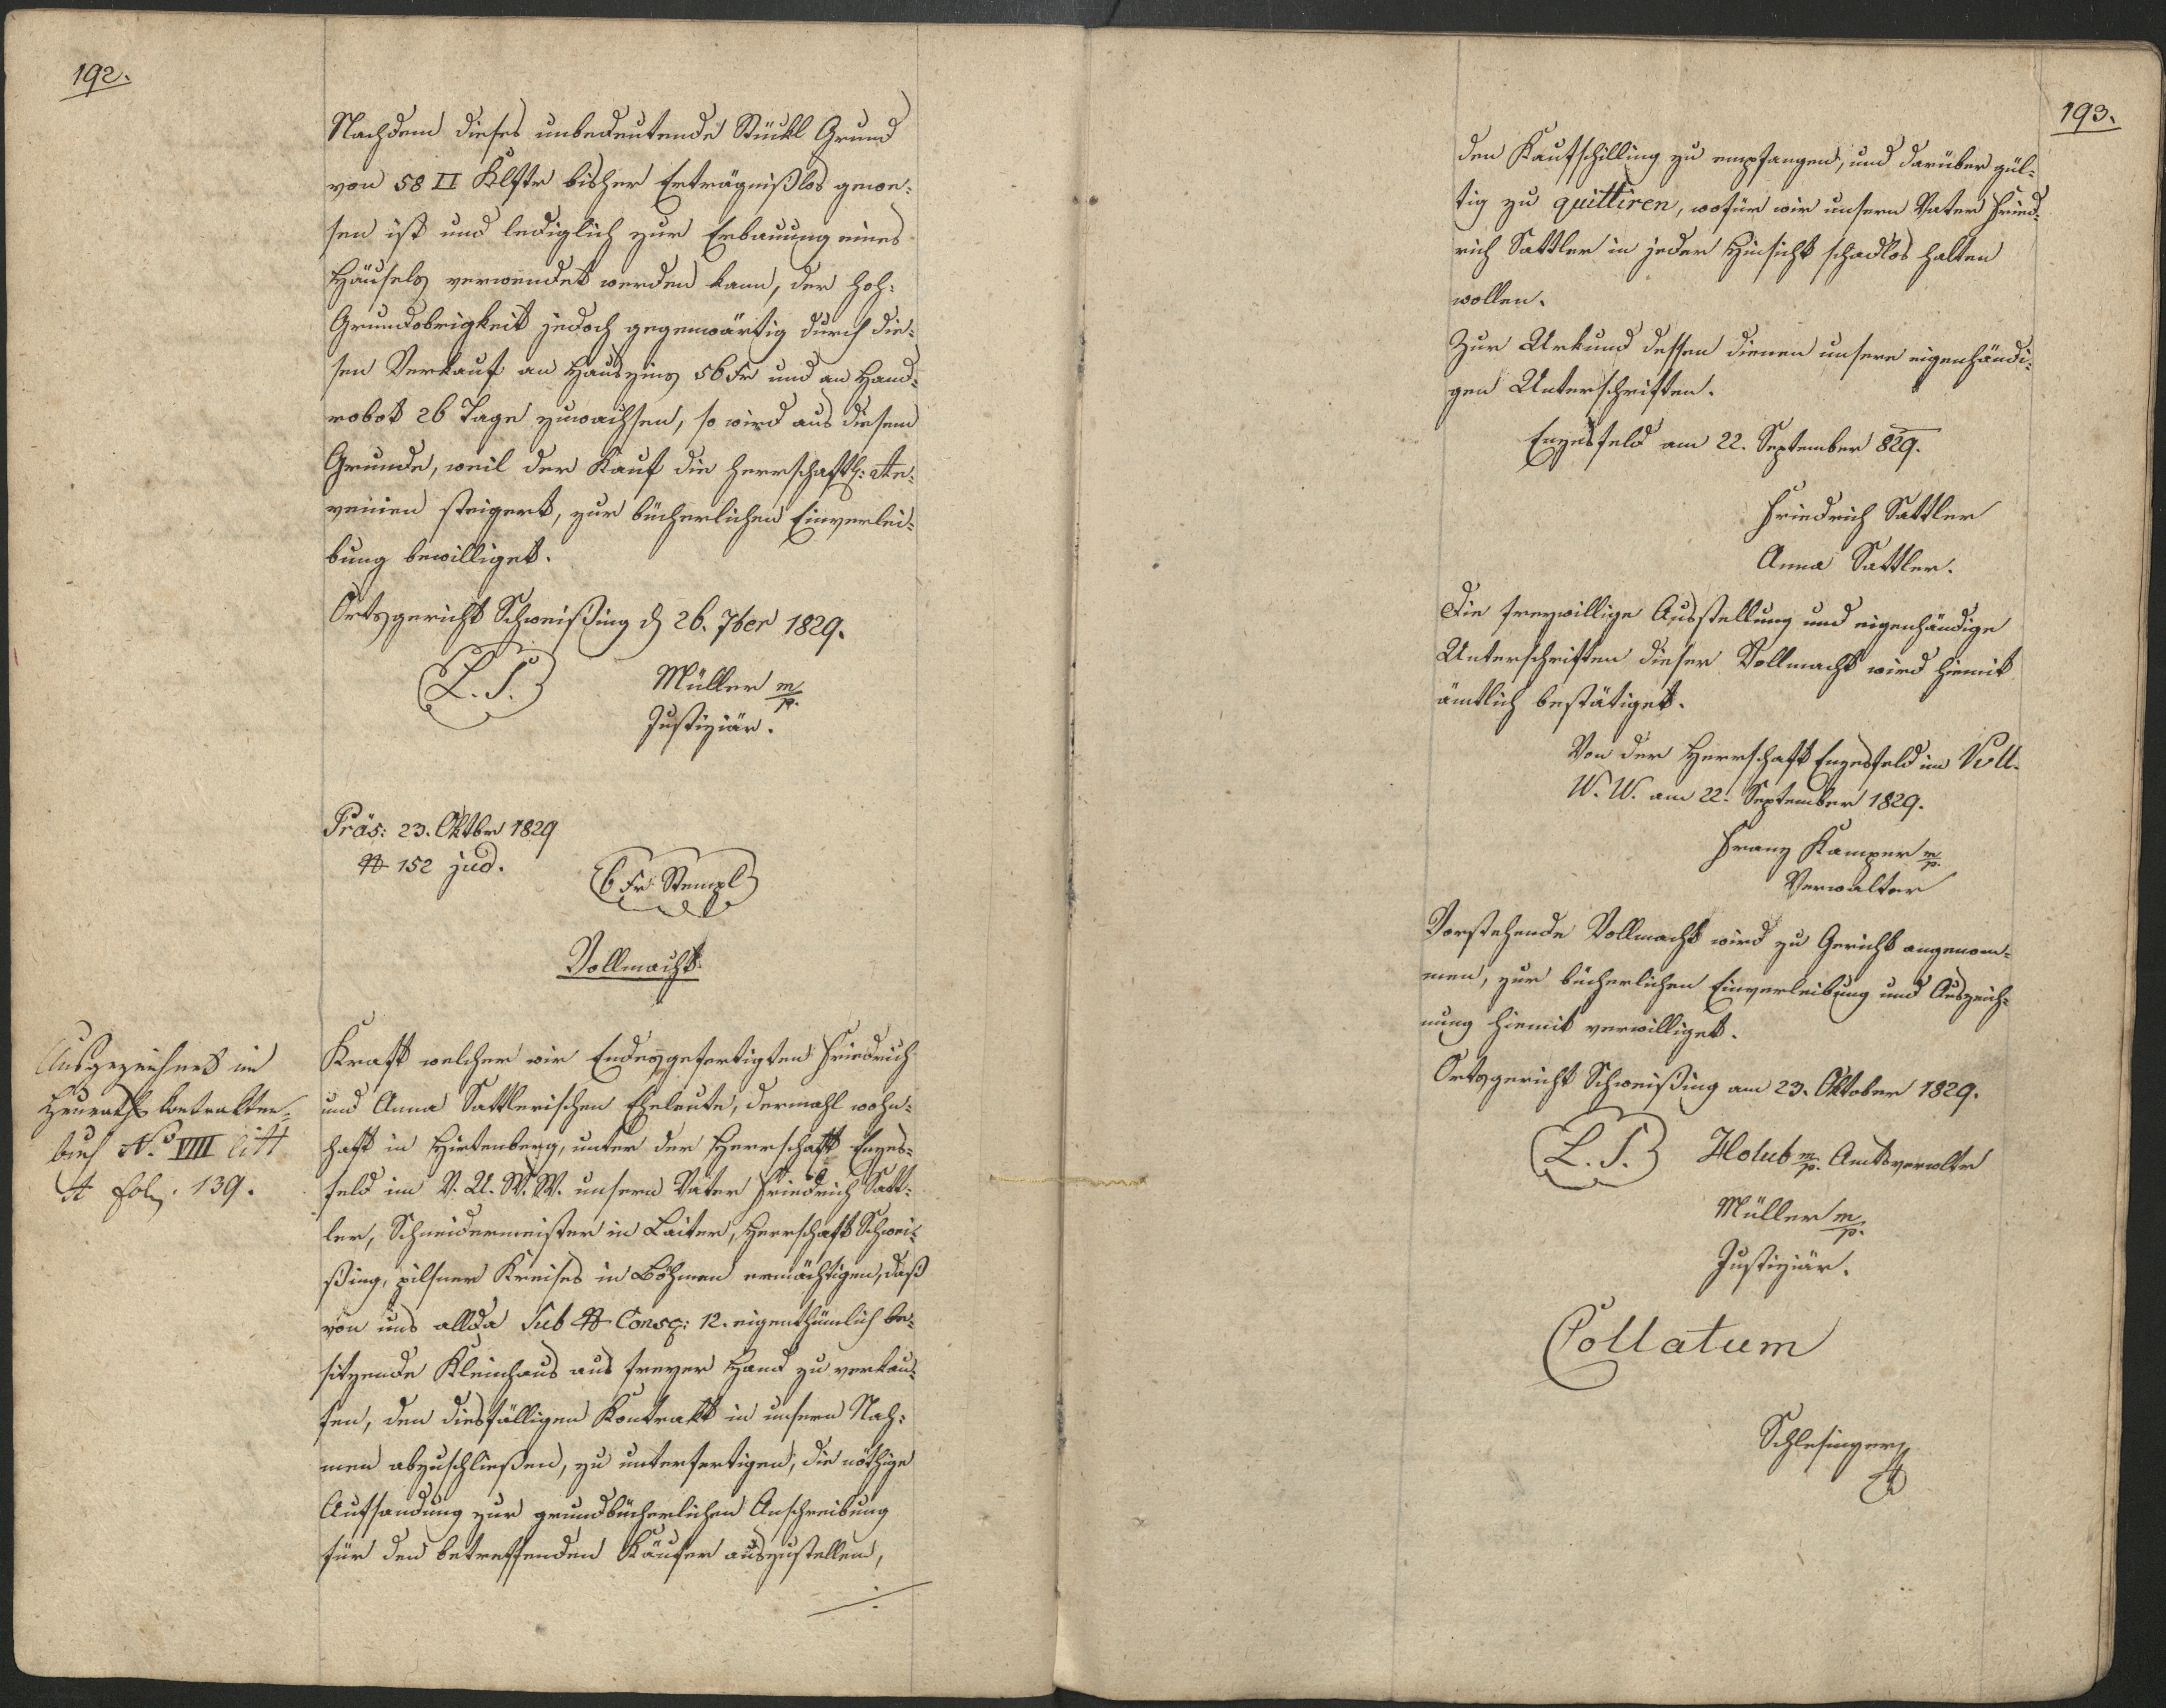 192.
Nachdem dieses unbedeutende Stückl Grund
von 58 □ Klftr bisher Erträgnißlos gewe-
sen ist und lediglich zur Erbauung eines
Häusels verwendet werden kann, der hoh:
Grundobrigkeit jedoch gegenwärtig durch die-
sen Verkauf an Hauszins 56 Kr und an Hand-
robot 26 Tage zuwachsen, so wird aus diesem
Grunde, weil der Kauf die herrschaftl: Re-
venüen steigert, zur bücherlichen Einverlei-
bung bewilliget.
Ortsgericht Schweißing d 26. 7ber 1829.
L. S.
Müller m/p.
Justiziär.
Präs: 23. Oktbr 1829
N 152 jud.
6 Kr Stempl
Vollmacht.
Ausgezeichnet im
Heuraths Kontrakten-
buch No. VIII litt
A fol. 139.
Kraft welcher wir Endesgefertigten Friedrich
und Anna Sattlerischen Eheleute, dermahl wohn-
haft in Hirtenberg, unter der Herrschaft Enzes-
feld im V. U. W. W. unsern Vater Friedrich Satt-
ler, Schneidermeister in Laiter, Herrschaft Schwei-
ßing, pilsner Kreises in Böhmen ermächtigen, daß
von uns allda Sub N Consc: 12. eigenthümlich be-
sitzende Kleinhaus aus freyer Hand zu verkau-
fen, den diesfälligen Kontrakt in unsern Nah-
men abzuschließen, zu unterfertigen, die nöthige
Aufsandung zur grundbücherlichen Anschreibung
für den betreffenden Käufer auszustellen,
193.
den Kaufschilling zu empfangen, und darüber gül-
tig zu quittiren, wofür wir unsern Vater Fried-
rich Sattler in jeder Hinsicht schadlos halten
wollen.
Zur Urkund dessen dienen unsere eigenhändi-
gen Unterschriften.
Enzesfeld am 22. September 829.
Friedrich Sattler
Anna Sattler.
Die freywillige Ausstellung und eigenhändige
Unterschriften dieser Vollmacht wird hiemit
ämtlich bestätiget.
Von der Herrschaft Enzesfeld im V. U.
W. W. am 22. September 1829.
Franz Kamper m/p.
Verwalter
Vorstehende Vollmacht wird zu Gericht angenom-
men, zur bücherlichen Einverleibung und Auszeich-
nung hiemit verwilliget.
Ortsgericht Schweißing am 23. Oktober 1829.
L. S.
Holub m/p. Amtsverwltr
Müller m/p.
Justiziär.
Collatum
Schlesinger